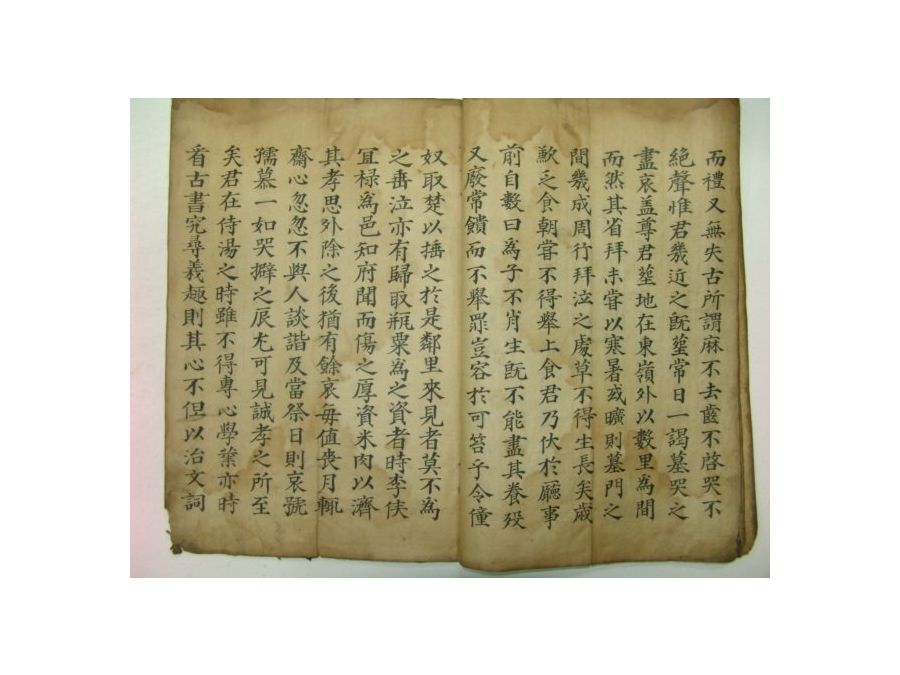 而禮又無失古所謂麻不去齒不啓哭不
絶聲惟君幾近之旣葬常日一謁墓哭之
盡哀盖尊君葬地在東嶺外以數里爲間
而然其省拜未甞以寒暑或曠則墓門之
間幾成周行拜泣之處草不得生長矣歲
歉乏食朝甞不得舉上食君乃伏於廳事
前自數曰爲子不肖生旣不能盡其養歿
又廢常饋而不舉罪豈容於可笞乎令僮
奴取楚以捶之於是鄰里來見者莫不爲
之垂泣亦有歸取瓶粟爲之資者時李侯
冝祿爲邑知府聞而傷之厚資米肉以濟
其孝思外除之後猶有餘哀每值喪月輒
齋心忽忽不與人談諧及當祭日則哀號
孺慕一如哭擗之辰尤可見誠孝之所至
矣君在侍湯之時雖不得專心學業亦時
看古書究尋義趣則其心不但以治文詞